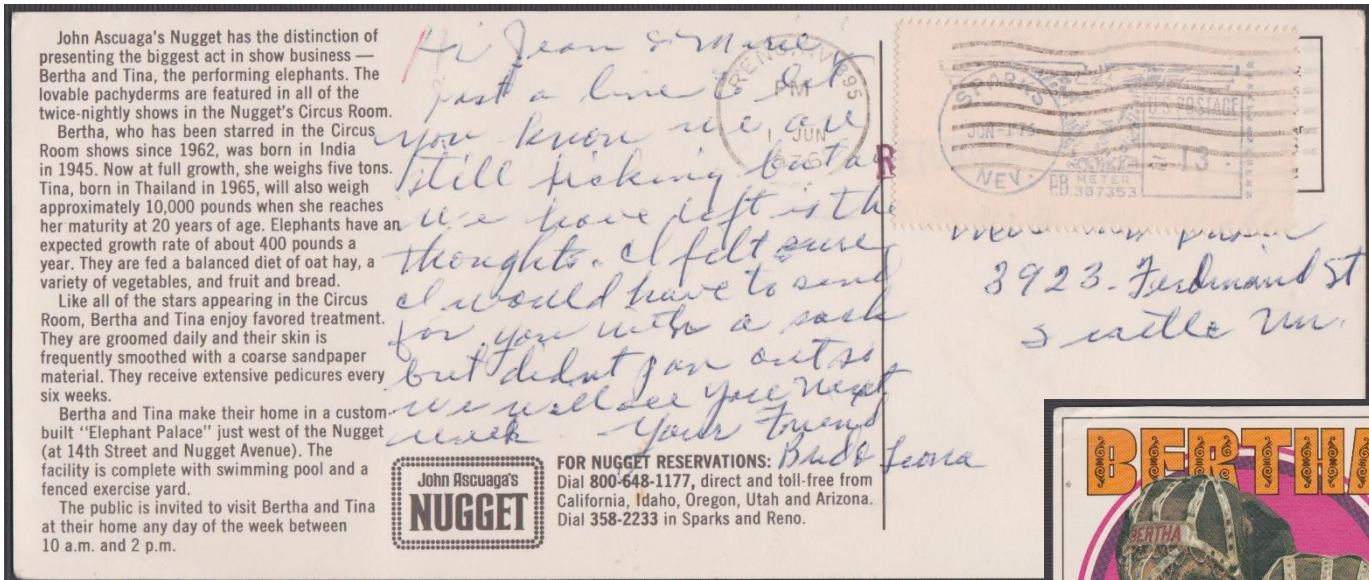 John Ascuaga's Nugget has the distinction of
presenting the biggest act in show business —
Bertha and Tina, the performing elephants. The
lovable pachyderms are featured in all of the
twice-nightly shows in the Nugget's Circus Room.
Bertha, who has been starred in the Circus
Room shows since 1962, was born in India
in 1945. Now at full growth, she weighs five tons.
Tina, born in Thailand in 1965, will also weigh
approximately 10,000 pounds when she reaches
her maturity at 20 years of age. Elephants have an
expected growth rate of about 400 pounds a
year. They are fed a balanced diet of oat hay, a
variety of vegetables, and fruit and bread.
Like all of the stars appearing in the Circus
Room, Bertha and Tina enjoy favored treatment.
They are groomed daily and their skin is
frequently smoothed with a coarse sandpaper
material. They receive extensive pedicures every
six weeks.
Bertha and Tina make their home in a custom-
built "Elephant Palace" just west of the Nugget
(at 14th Street and Nugget Avenue). The
facility is complete with swimming pool and a
fenced exercise yard.
The public is invited to visit Bertha and Tina
at their home any day of the week between
10 a.m. and 2 p.m.
Hi Jean & Marie
Just a line to let
you know we are
still kicking but
we have left is the
thoughts. I felt sure
I would have to send
for you with a sack
but didnt pan out so
we will see you next
week Your Friend
Leona
John Ascuaga's
NUGGET
FOR NUGGET RESERVATIONS:
Dial 800-648-1177, direct and toll-free from
California, Idaho, Oregon, Utah and Arizona.
Dial 358-2233 in Sparks and Reno.
RENO, NV 895
PM
1 JUN
1976
SPARKS
JUN-1'76
NEV.
U.S. POSTAGE
13
P.B. METER
307353
3923. Ferdinand St
Seattle Wn.
BERTHA
BERTHA